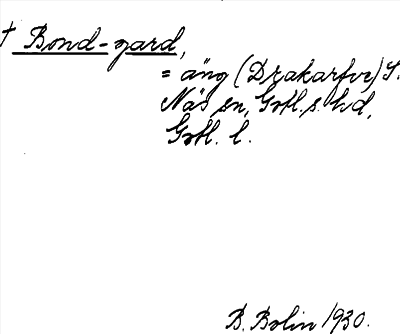 † Bond-gard,
= äng (Drakarfve) S.
Näs sn, Gotl. s. hd,
Gotl. l.
B. Bolin 1930.